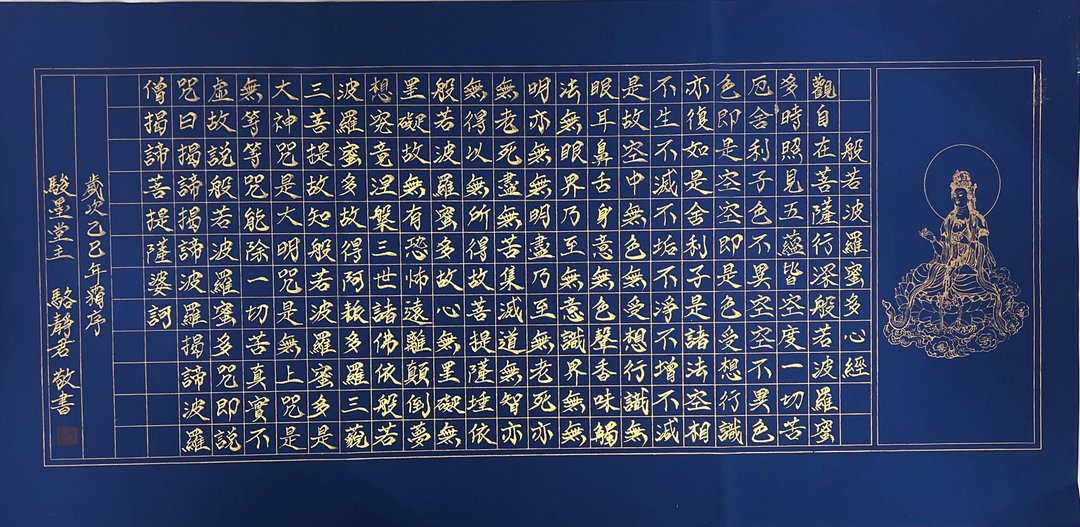 般若波羅蜜多心經
觀自在菩薩行深般若波羅蜜
多時照見五蘊皆空度一切苦
厄舍利子色不異空空不異色
色即是空空即是色受想行識
亦復如是舍利子是諸法空相
不生不滅不垢不淨不增不減
是故空中無色無受想行識無
眼耳鼻舌身意無色聲香味觸
法無眼界乃至無意識界無無
明亦無無明盡乃至無老死亦
無老死盡無苦集滅道無智亦
無得以無所得故菩提薩埵依
般若波羅蜜多故心無罣礙無
罣礙故無有恐怖遠離顛倒夢
想究竟涅槃三世諸佛依般若
波羅蜜多故得阿耨多羅三藐
三菩提故知般若波羅蜜多是
大神咒是大明咒是無上咒是
無等等咒能除一切苦真實不
虛故說般若波羅蜜多咒即說
咒曰揭諦揭諦波羅揭諦波羅
僧揭諦菩提薩婆訶
歲次乙巳年霜序
駿墨堂主 駱靜君 敬書